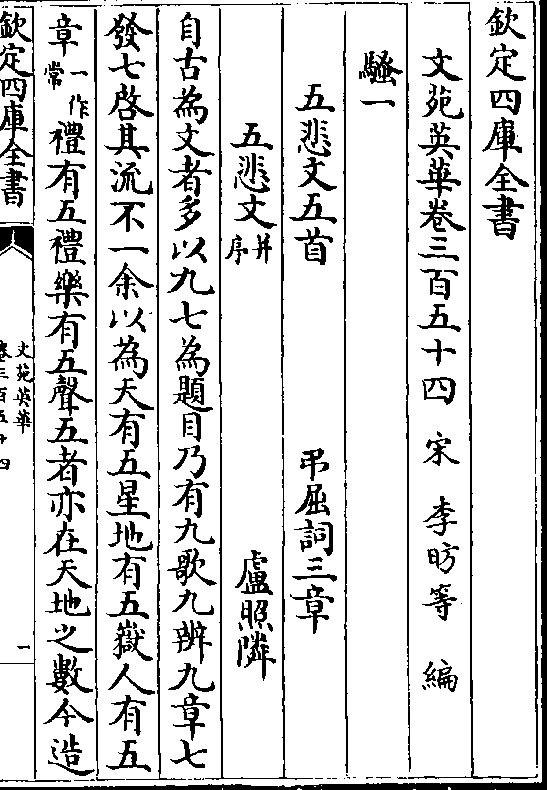 欽定四庫全書
文苑英華卷三百五十四 宋 李昉等 編
騷一
五悲文五首 弔屈詞三章
五悲文并序 盧照隣
自古為文者多以九七為題目乃有九歌九辨九章七
發七啓其流不一余以為天有五星地有五嶽人有五
章一作常禮有五禮樂有五聲五者亦在天地之數今造
欽定四庫全書
文苑英華
卷三百五十四
一